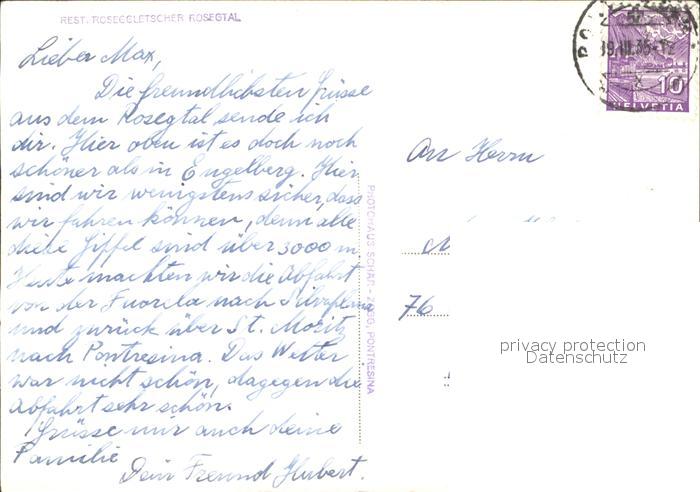 REST. ROSEGGLETSCHER ROSEGTAL
Lieber Max,
Die freundlichsten Grüsse
aus dem Rosegtal sende ich
dir. Hier oben ist es doch noch
schöner als in Engelberg. Hier
sind wir wenigstens sicher, dass
wir fahren können, denn alle
diese Gipfel sind über 3000 m.
Heute machten wir die Abfahrt
von der Fuorcla nach Silvaplana
und zurück über St. Moritz
nach Pontresina. Das Wetter
war nicht schön, dagegen die
Abfahrt sehr schön.
Grüsse mir auch deine
Familie
Dein Freund Hubert.
PHOTOHAUS SCHÄR-ZOGG, PONTRESINA
19.III.35-12
10
HELVETIA
An Herrn
76
privacy protection
Datenschutz